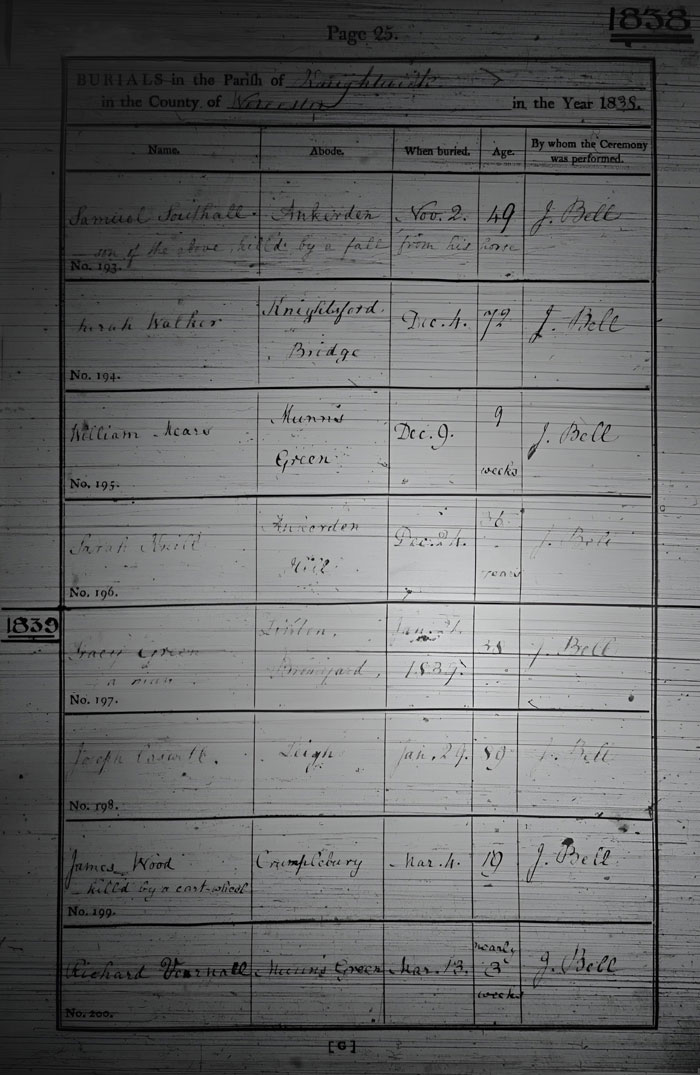 1838
Page 25.
BURIALS in the Parish of Knightwick
in the County of Worcester in the Year 1838.
Name. Abode. When buried. Age. By whom the Ceremony was performed.
Samuel Southall. Ankerden Nov. 2. 49 J. Bell
son of the above, killd by a fall from his horse
No. 193.
Sarah Walker Knightsford Bridge Dec. 4. 72 J. Bell
No. 194.
William Mears Munn's Green Dec. 9. 9 weeks J. Bell
No. 195.
Sarah Ankerden Hill Dec. 24. 36 years J. Bell
No. 196.
1839
Tracy Green Linton, Bromyard, Jan. 21. 1839. 38 J. Bell
a man
No. 197.
Joseph Leigh Jan. 29. 59 J. Bell
No. 198.
James Wood Crumplebury Mar. 4. 19 J. Bell
killd by a cart-wheel
No. 199.
Richard Vernall Munn's Green Mar. 13. nearly 3 weeks J. Bell
No. 200.
[G]